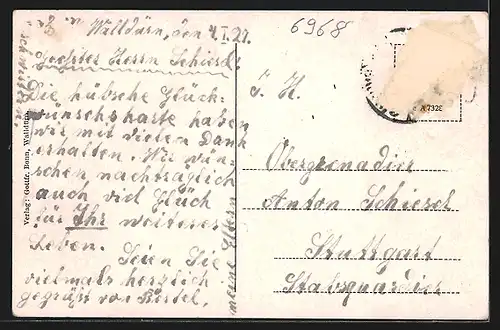 Walldürn, den 4.I.21.
6968
Geehrter Herrn Schiesel!
Die hübsche Glück-
wünschskarte haben
wir mit vielen Dank
erhalten. Wir wün-
schen nachträglich
auch viel Glück
für Ihr weiteres
Leben.
Seien Sie
vielmals herzlich
gegrüßt von
meine Eltern
Verlag: Gottfr. Bonn, Walldürn
A 7326
S. H.
Obergrenadier
Anton Schiesel
Stuttgart
Stabsquardier